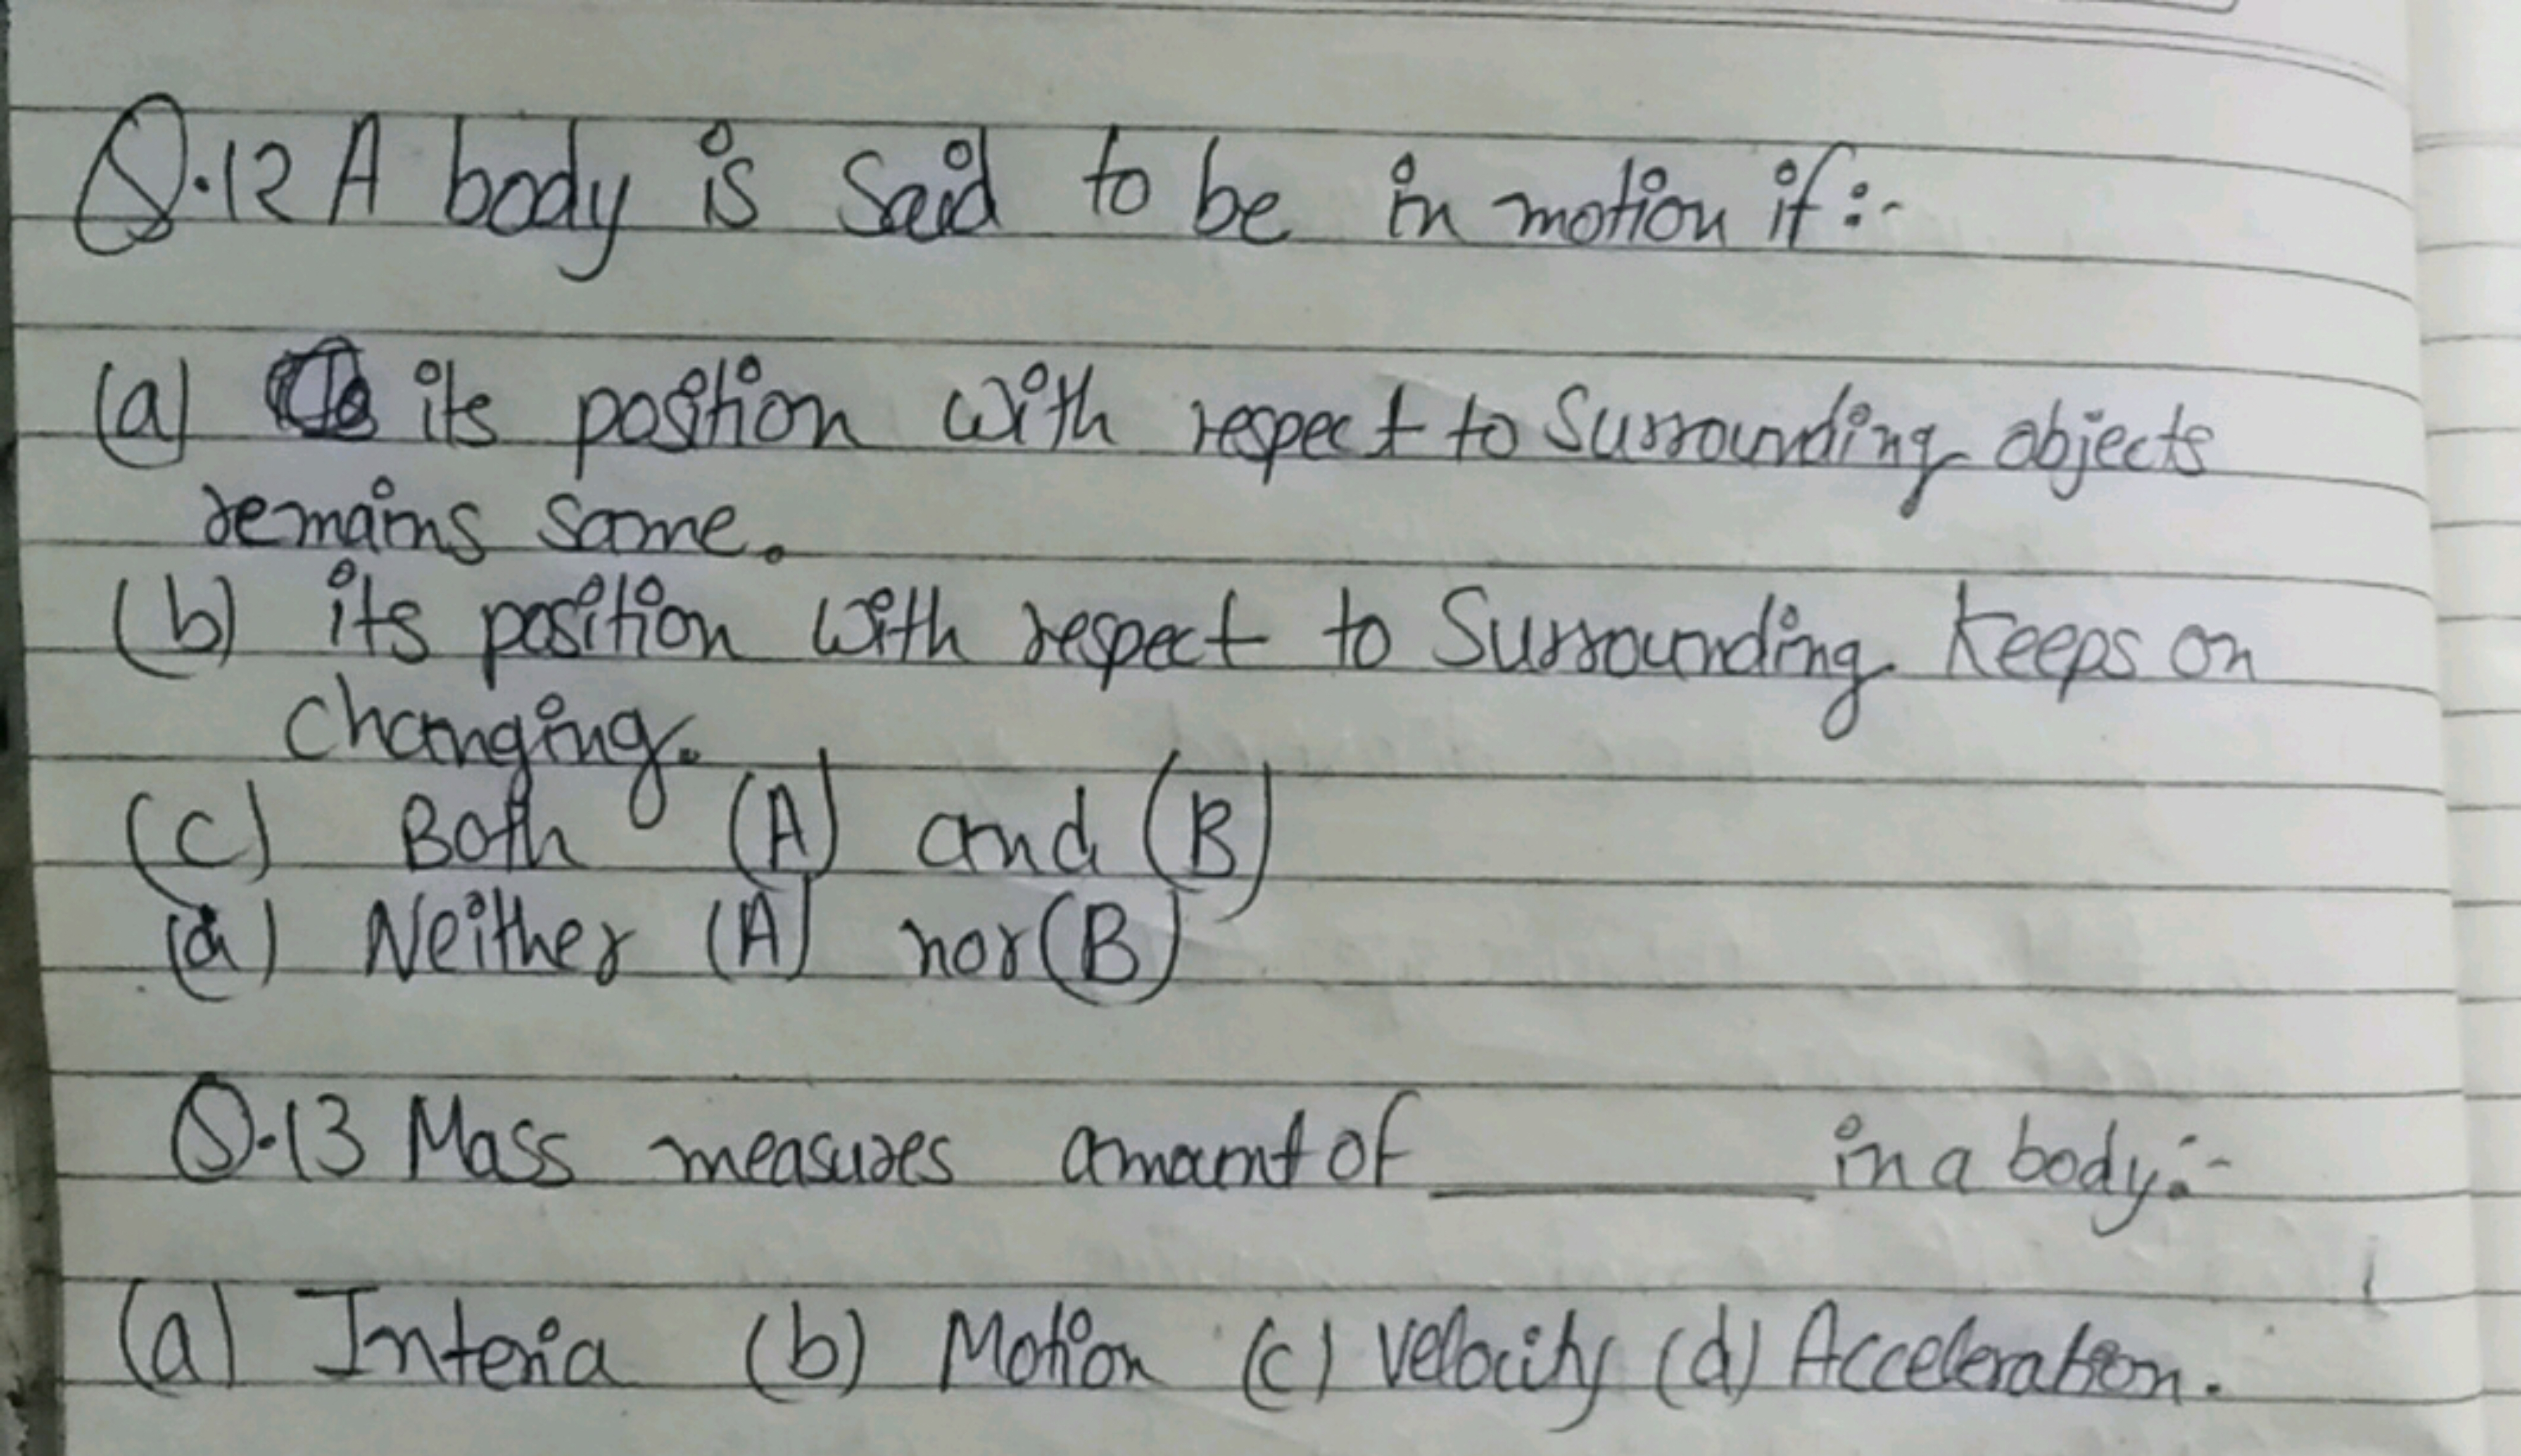 Q.12 A body is Said to be in motion if :-
(a) its position with respect to Surrounding objects
remains same.
(b) its position with respect to Surrounding keeps on
changing.
(c) Both (A) and (B)
(d) Neither (A) nor (B)
Q.13 Mass measures amount of ________ in a body:-
(a) Interia (b) Motion (c) Velocity (d) Acceleration.